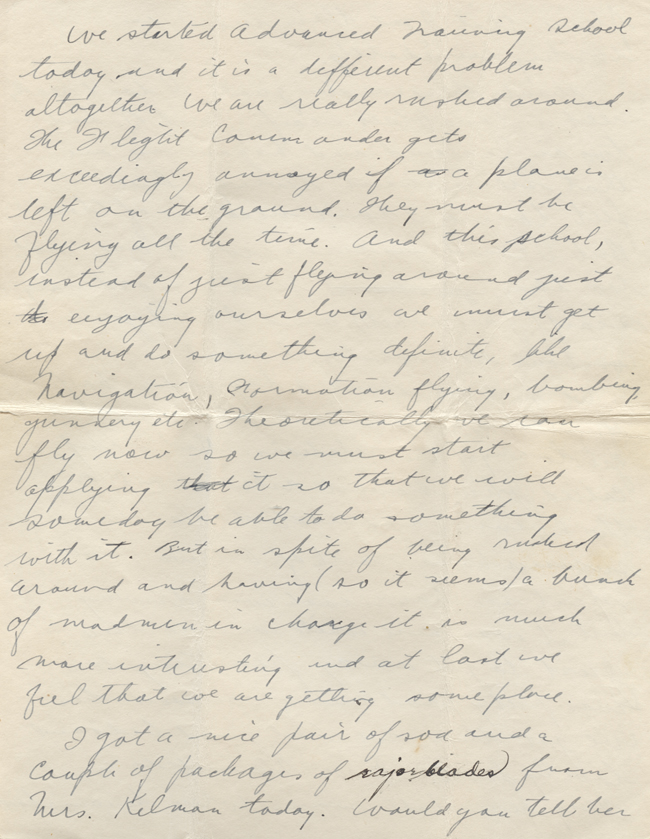 We started Advanced Training School
today and it is a different problem
altogether We are really rushed around.
The Flight Commander gets
exceedingly annoyed if as a plane is
left on the ground. They must be
flying all the time. And this school,
instead of just flying around just
the enjoying ourselves we must get
up and do something definite, like
Navigation, Formation flying, bombing,
gunnery etc. Theoretically we can
fly now so we must start
applying that it so that we will
someday be able to do something
with it. But in spite of being rushed
around and having (so it seems) a bunch
of madmen in charge it is much
more interesting and at last we
feel that we are getting some place.
I got a nice pair of sox and a
couple of packages of razor blades from
Mrs. Kelman today. Would you tell her